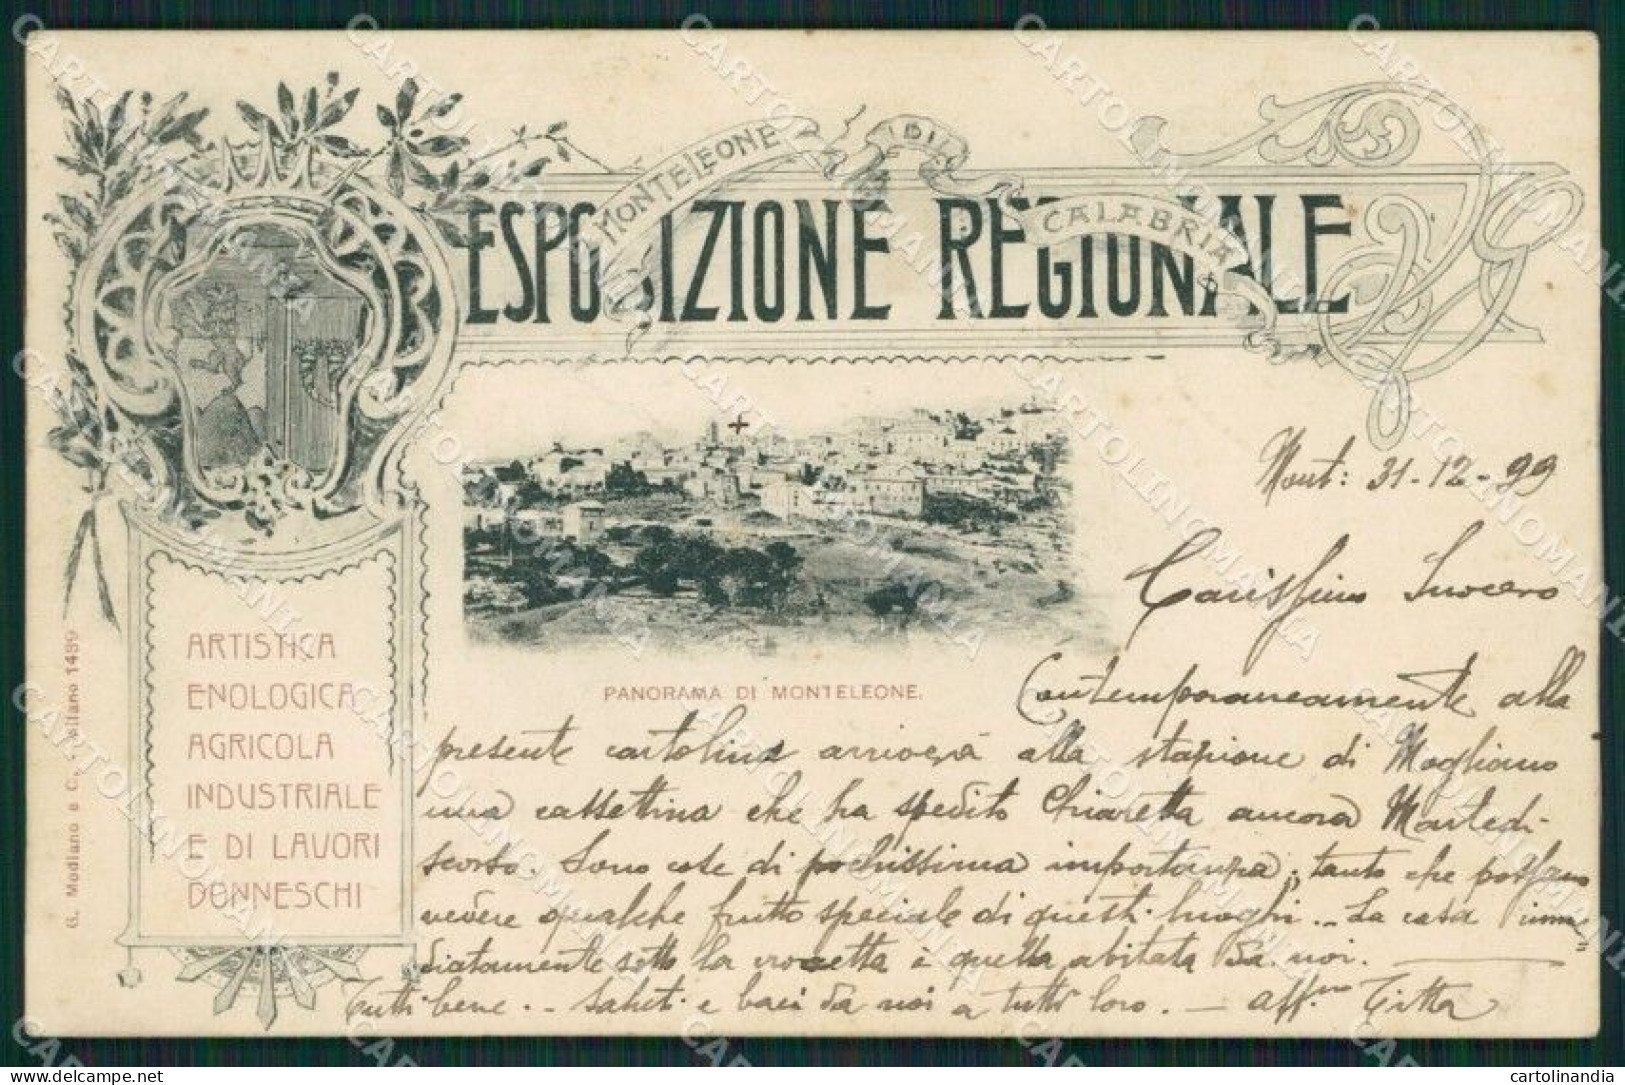 MONTELEONE DI CALABRIA
ESPOSIZIONE REGIONALE
ARTISTICA
ENOLOGICA
AGRICOLA
INDUSTRIALE
E DI LAVORI
DONNESCHI
G. Modiano e C., Milano 1489
PANORAMA DI MONTELEONE.
Mont: 31-12-99
Carissimo Suocero
Contemporaneamente alla
presente cartolina arriverà alla stazione di Mogliano
una cassettina che ha spedito Chiaretta ancora Martedi
scorso. Sono cose di pochissima importanza; tanto che possano
vedere qualche frutto speciale di questi luoghi.. La casa imme=
diatamente sotto la crocetta è quella abitata da noi.
Tutti bene.. Saluti e baci da noi a tutti loro. — aff.mo Titta
CARTOLINOMANIA
cartolinandia